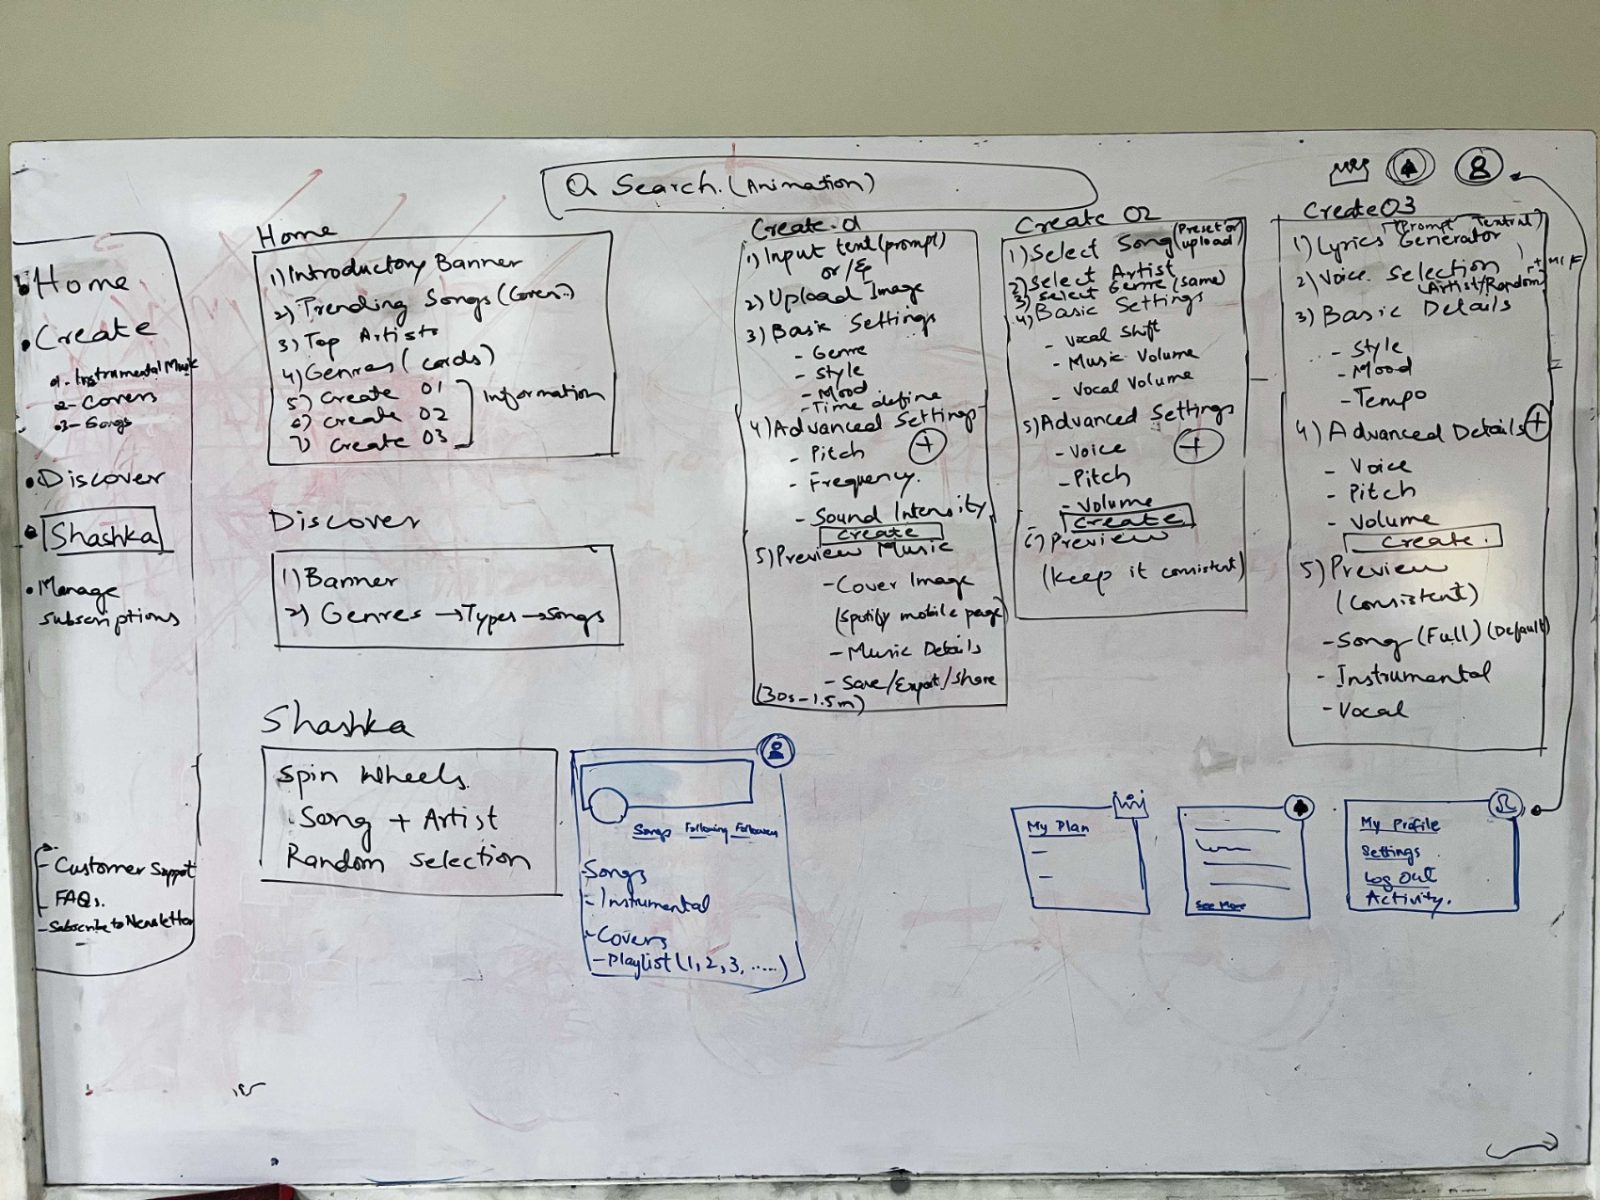 Search. (Animation)
Home
Create
01 - Instrumental Music
02 - Covers
03 - Songs
Discover
Shashka
Manage
subscriptions
- Customer Support
- FAQs.
- Subscribe to Newsletter
Home
1) Introductory Banner
2) Trending Songs
3) Top Artists
4) Genres (cards)
5) Create 01
6) Create 02
7) Create 03
Information
Discover
1) Banner
2) Genres → Types → Songs
Shashka
Spin Wheels
Song + Artist
Random Selection
Songs Following Followers
Songs
- Instrumental
- Covers
- Playlist (1, 2, 3, .....)
Create 01
1) Input text (prompt)
or/&
2) Upload Image
3) Basic Settings
- Genre
- Style
- Mood
- Time define
4) Advanced Settings
- Pitch
- Frequency.
- Sound Intensity
Create
5) Preview Music
- Cover Image
(Spotify mobile page)
- Music Details
- Save/Export/Share
(30s - 1.5m)
Create 02
1) Select Song (Preset or upload)
2) Select Artist
3) Select Genre (same)
4) Basic Settings
- Vocal Shift
- Music Volume
- Vocal Volume
5) Advanced Settings
- Voice
- Pitch
- Volume
Create
6) Preview
(Keep it consistent)
Create 03
(Prompt Textual)
1) Lyrics Generator
2) Voice Selection
+ M/F
(Artist/Random)
3) Basic Details
- Style
- Mood
- Tempo
4) Advanced Details +
- Voice
- Pitch
- Volume
Create.
5) Preview
(Consistent)
- Song (Full) (Default)
- Instrumental
- Vocal
My Plan
See More
My Profile
Settings
Log Out
Activity.